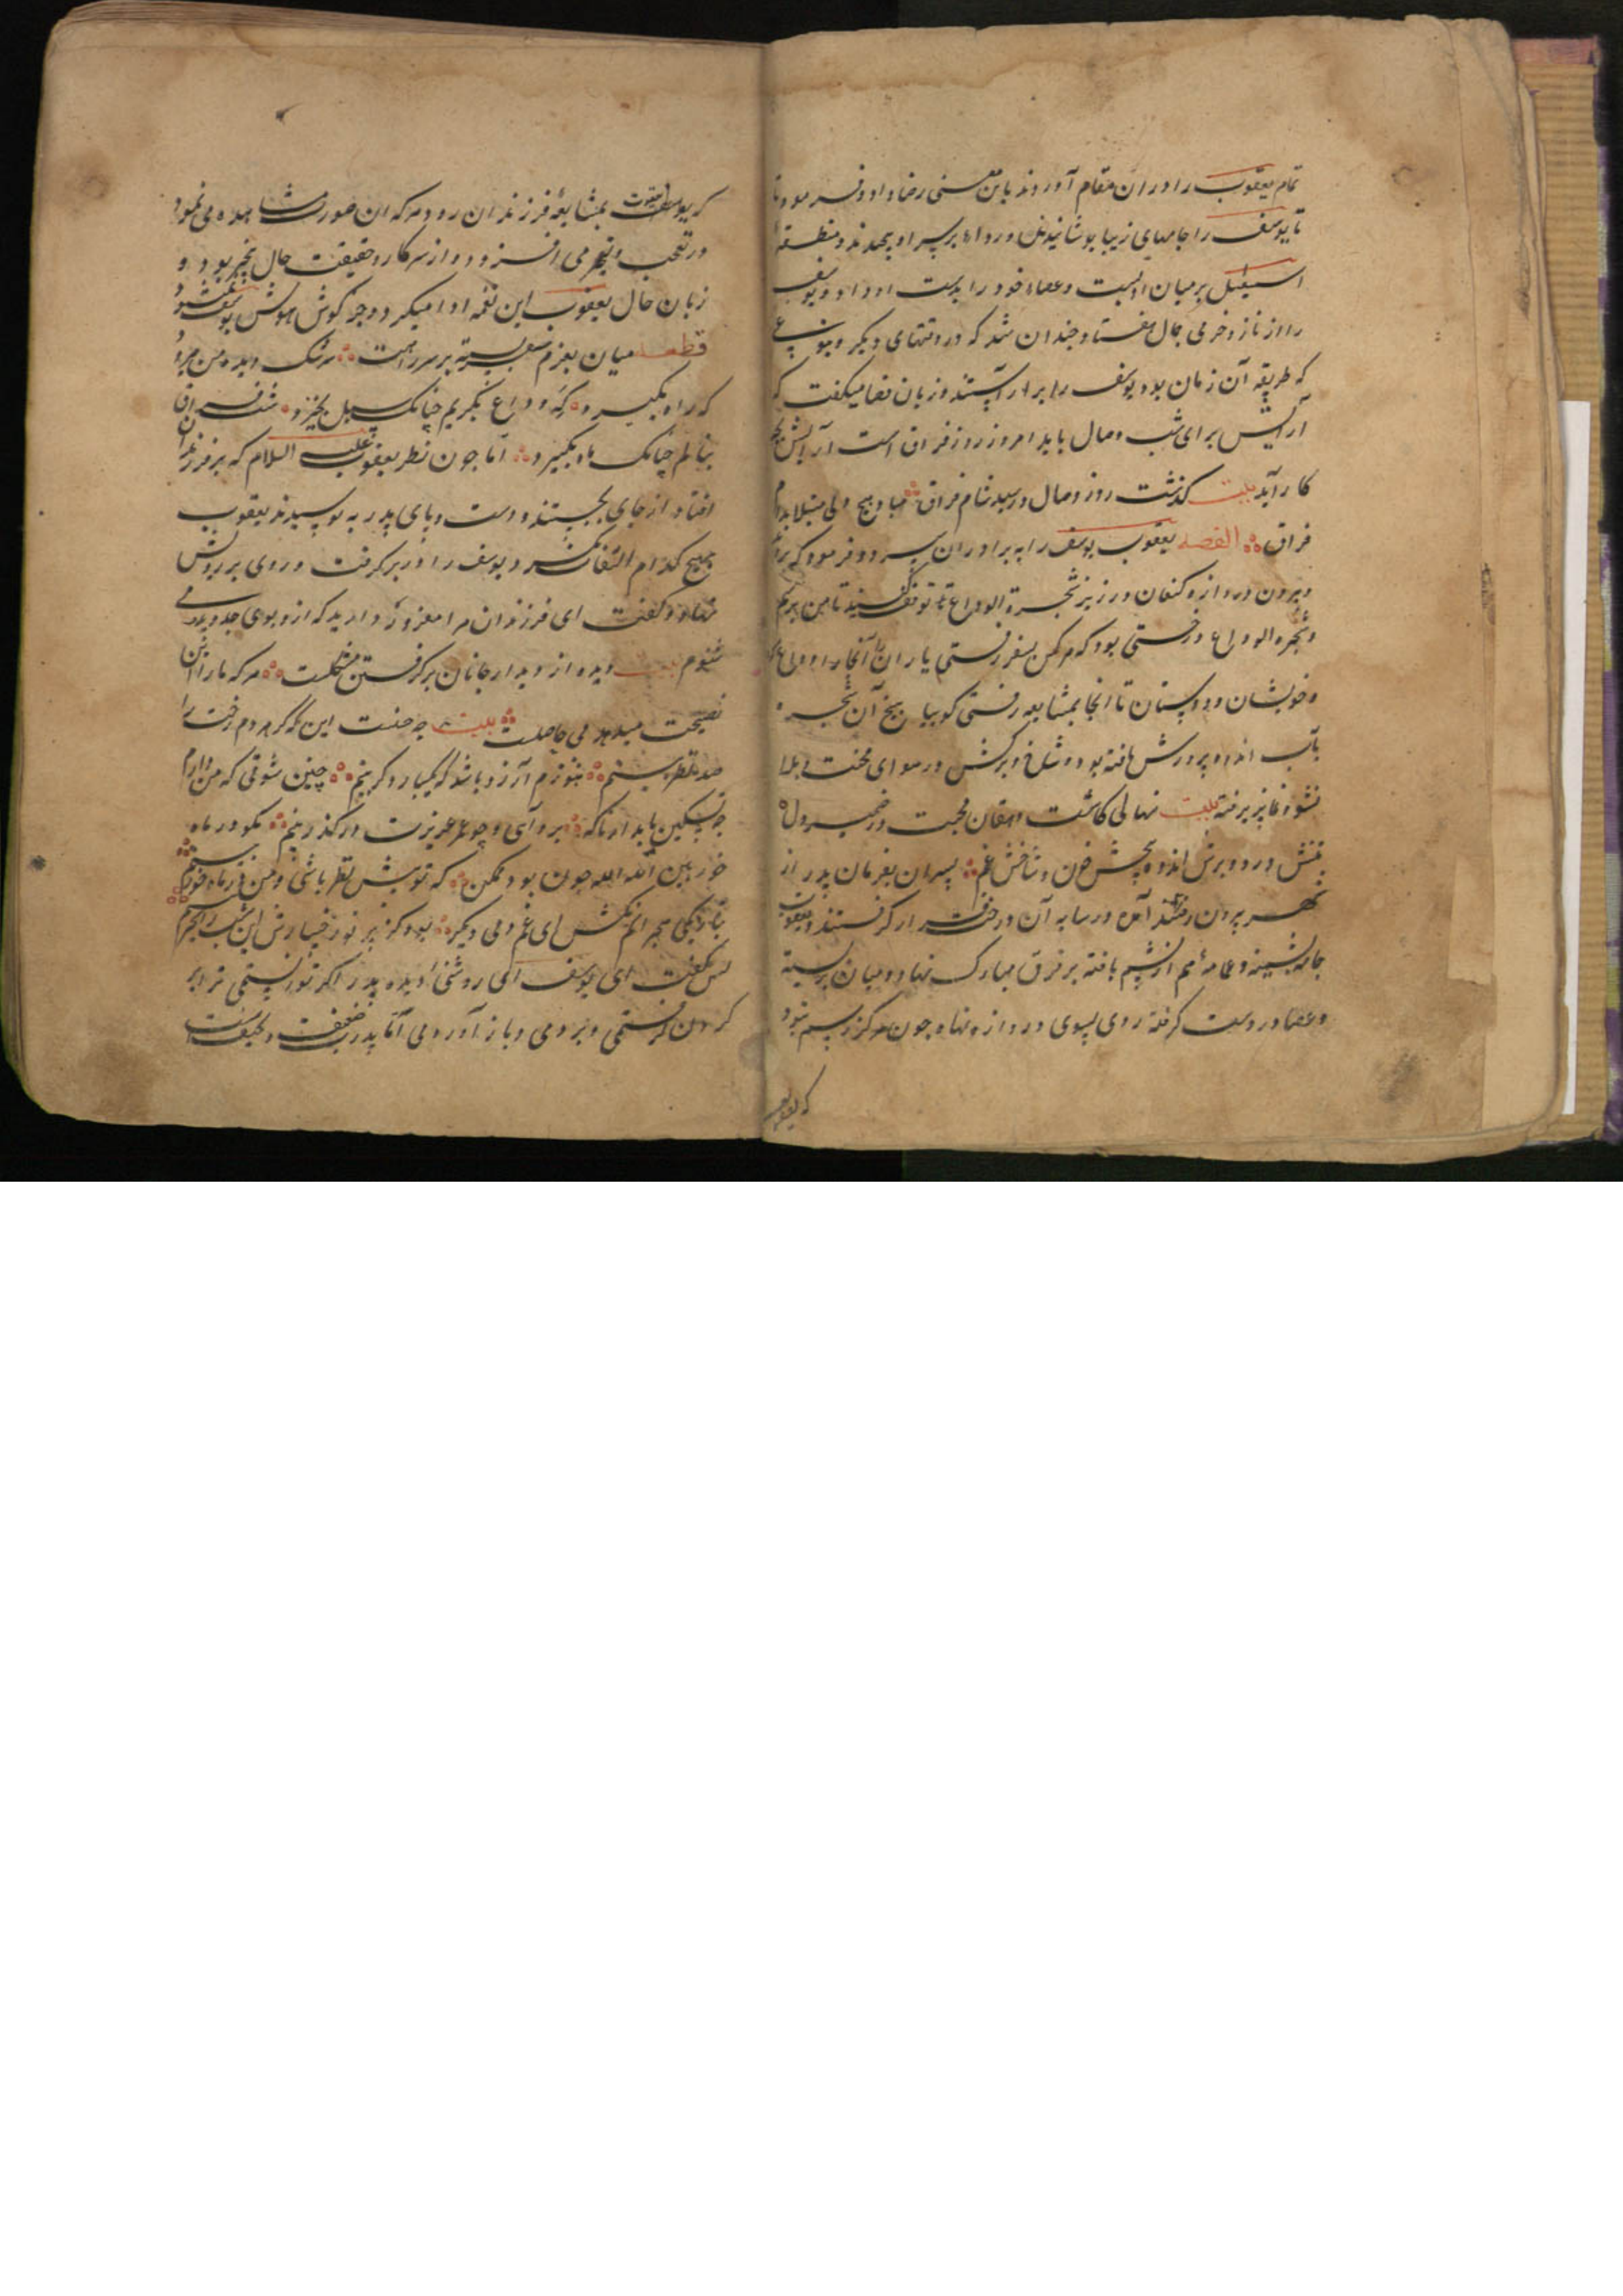 تمام یعقوب را در ان مقام آوردند باین معنی رضا داد و فرمود تا
تا یوسف را جامهای زیبا پوشانیدند و رداء بر سر او پیچیدند و منطقه
اسمعیل بر میان او بست و عصاء خود را بدست او داد و یوسف
را از ناز و خرمی جمال هفتاد چندان شد که در وقتهای دیگر و بنوعی
که طریقه آن زمان بود یوسف را بر آراستند و زبان قضا میگفت که
آرایش برای شب وصال باید امروز روز فراق است آرایش بچه
کار آید بیت گذشت روز وصال و رسید شام فراق مباد هیچ دلی مبتلا بدام
فراق القصه یعقوب یوسف را به برادران سپرد و فرمود که
بیرون دروازه کنعان در زیر شجرة الوداع توقف کنید تا من برسم
و شجره الوداع درختی بود که هر کس بسفر رفتی یاران تا آنجا او را وداع
و خویشان و دوستان تا انجا بمشایعه رفتی گوییا بیخ آن شجره
بآب اندوه پرورش یافته بود و شاخ و برگش در هوای محنت و بلا
نشو و نما پذیرفته بیت نهالی کاشت دهقان محبت در ضمیر دل
تنش درد و برش اندوه بیخش حزن و شاخش غم پسران بفرمان پدر از
شهر بیرون رفتند و در سایه آن درخت قرار گرفتند و یعقوب
جامه پشمینه و عمامه هم از پشم بافته بر فرق مبارک نهاد و میان بر بسته
و عصا در دست گرفته روی بسوی دروازه نهاد چون هرگز رسم نبود
که یعقوب
بمشایعه فرزندان رود هر که ان صورت مشاهده می نمود
در تعجب و تحیر می افزود و از سر کار و حقیقت حال بیخبر بود و
زبان حال یعقوب این نغمه ادا میکرد و جز گوش هوش یوسف نمی شنود
قطعه میان بعزم سفر بسته بر سر راهست سرشک دیده من
که راه بگیرد گه وداع بگریم چنانکه سیل بخیزد شب فراق
بنالم چنانک ماه بگیرد اما چون نظر یعقوب علیه السلام که بر فرزندان
افتاد از جای بجستند و دست و پای پدر به بوسیدند یعقوب
بهیچ کدام التفات نکرد و یوسف را در بر گرفت و روی بر رویش
نهاد و گفت ای فرزندان مرا معذور دارید که ازو بوی جد و پدر می
شنوم بیت دیده از دیدار جانان بر گرفتن مشکلست هر که ما را این
نصیحت میدهد بی حاصلست بیت چه حالست این که گر هر دم رخت را
صد نظر بینم هنوزم آرزو باشد که یکبار دگر بینم چنین شوقی که من دارم
چه تسکین یابد ار ناگه بر آی و چو عمر عزیزت در گذر بینم مگو در ماه
خور بین الله الله چون بود ممکن که تو پیش نظر باشی و من در ماه خور بینم
بتاریکی هجرانم مکش ای غم دمی دیگر بود کز پرتو رخسارش این شب را سحر بینم
پس گفت ای یوسف ای روشنی دیده پدر اگر توانستمی ترا بر
گردن گرفتمی و بردمی و باز آوردمی اما پدرت ضعیفست و